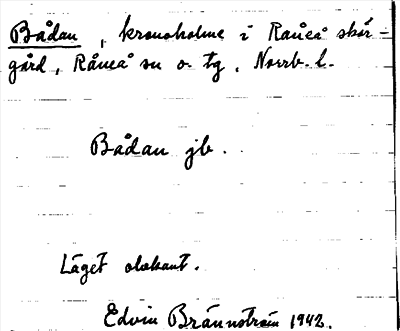 Bådan, kronoholme i Råneå skär-
gård, Råneå sn o. tg, Norrb. l.
Bådan jb.
Läget obekant.
Edvin Brännström 1942.